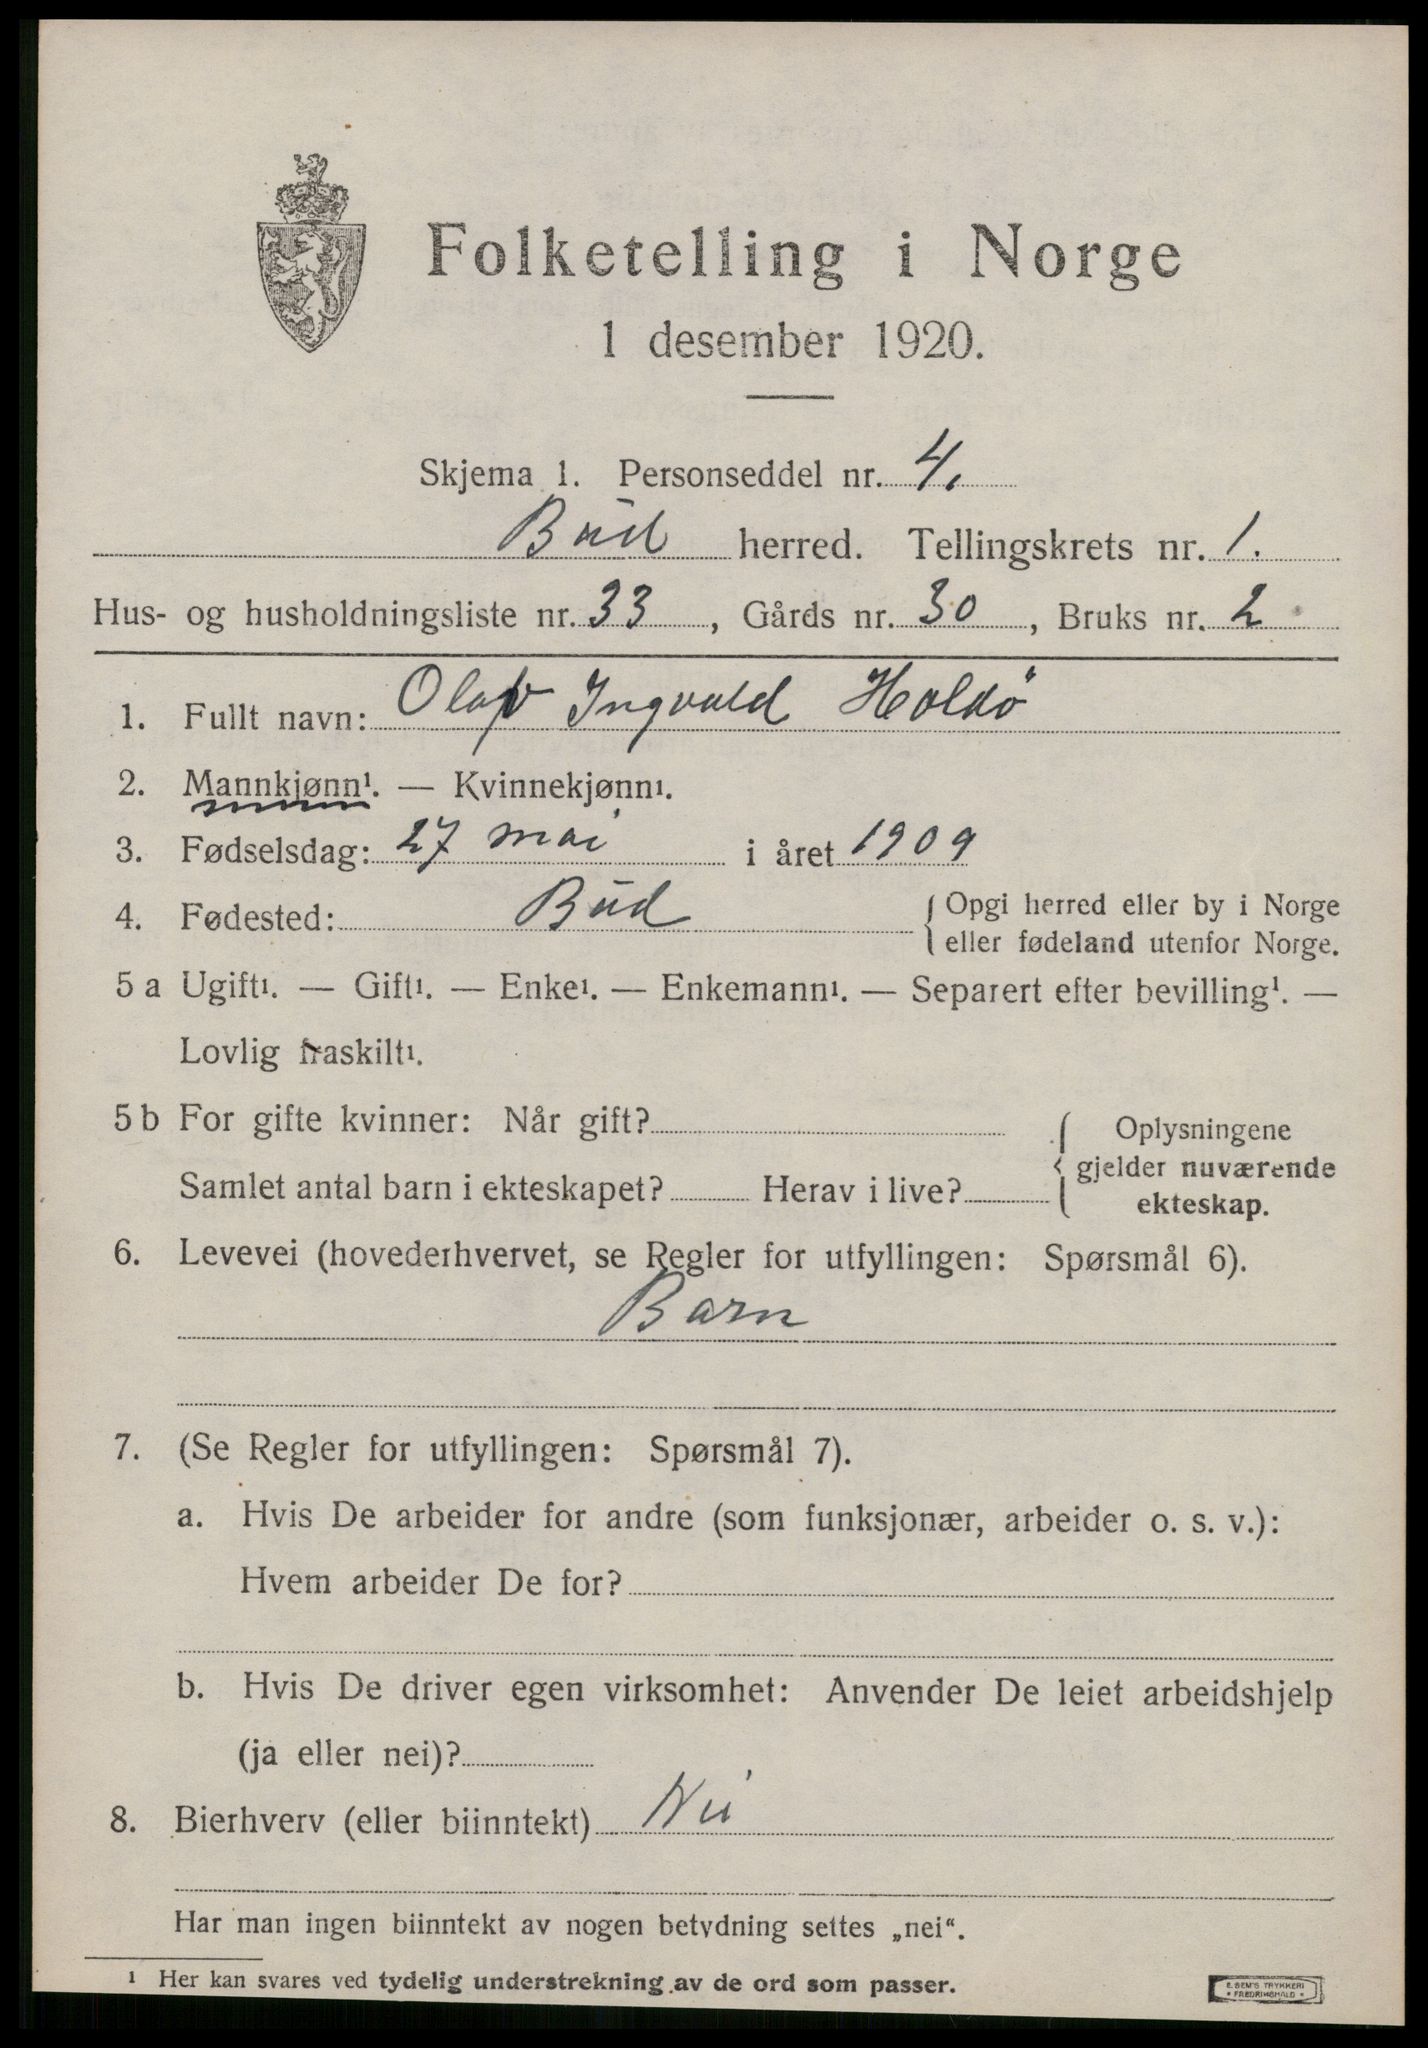 Folketelling i Norge
1 desember 1920.
Skjema 1. Personseddel nr. 4.
Bud herred. Tellingskrets nr. 1.
Hus- og husholdningsliste nr. 33, Gårds nr. 30, Bruks nr. 2
1. Fullt navn: Olav Ingvald Holdö
2. Mannkjønn¹. — Kvinnekjønn¹.
3. Fødselsdag: 27 mai i året 1909
4. Fødested: Bud { Opgi herred eller by i Norge
eller fødeland utenfor Norge.
5 a Ugift¹. — Gift¹. — Enke¹. — Enkemann¹. — Separert efter bevilling¹. —
Lovlig fraskilt¹.
5 b For gifte kvinner: Når gift? { Oplysningene
gjelder nuværende
Samlet antal barn i ekteskapet? Herav i live?
ekteskap.
6. Levevei (hovederhvervet, se Regler for utfyllingen: Spørsmål 6).
Barn
7. (Se Regler for utfyllingen: Spørsmål 7).
a. Hvis De arbeider for andre (som funksjonær, arbeider o. s. v.):
Hvem arbeider De for?
b. Hvis De driver egen virksomhet: Anvender De leiet arbeidshjelp
(ja eller nei)?
8. Bierhverv (eller biinntekt) Nei
Har man ingen biinntekt av nogen betydning settes „nei“.
¹ Her kan svares ved tydelig understrekning av de ord som passer.
E. SEM'S TRYKKERI
* FREDRIKSHALD *